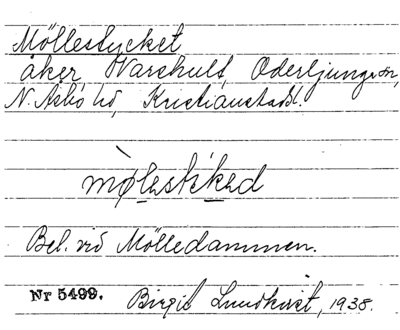 Möllestycket
åker Varshult, Oderljunga sn,
N. Åsbo hd, Kristianstads l.
mø̀lestíked
Bel. vid Mölledammen.
Nr 5499. Birgit Lundkvist, 1938.